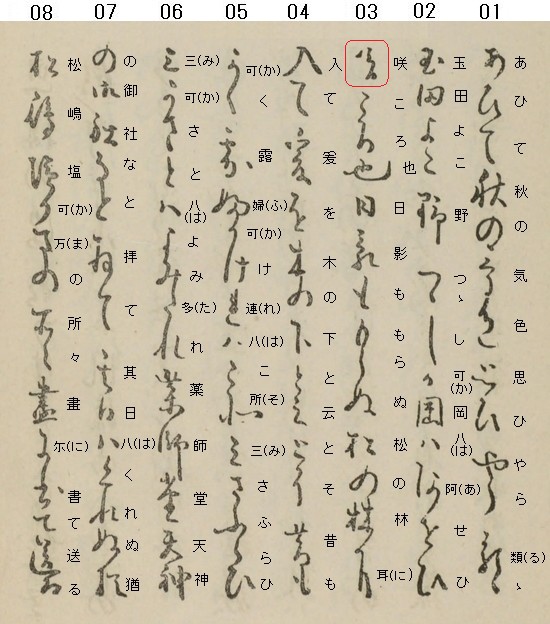 08 07 06 05 04 03 02 01
あひて秋の気色思ひやら類(る)ゝ
玉田よこ野つゝし可(か)岡八(は)阿(あ)せひ
咲ころ也日影ももらぬ松の林耳(に)
入て爰を木の下と云とそ昔も
可(か)く露婦(ふ)可(か)け連(れ)八(は)こ所(そ)三(み)さふらひ
三(み)可(か)さと八(は)よみ多(た)れ薬師堂天神
の御社なと拝て其日八(は)くれぬ猶
松嶋塩可(か)万(ま)の所々畫尓(に)書て送る